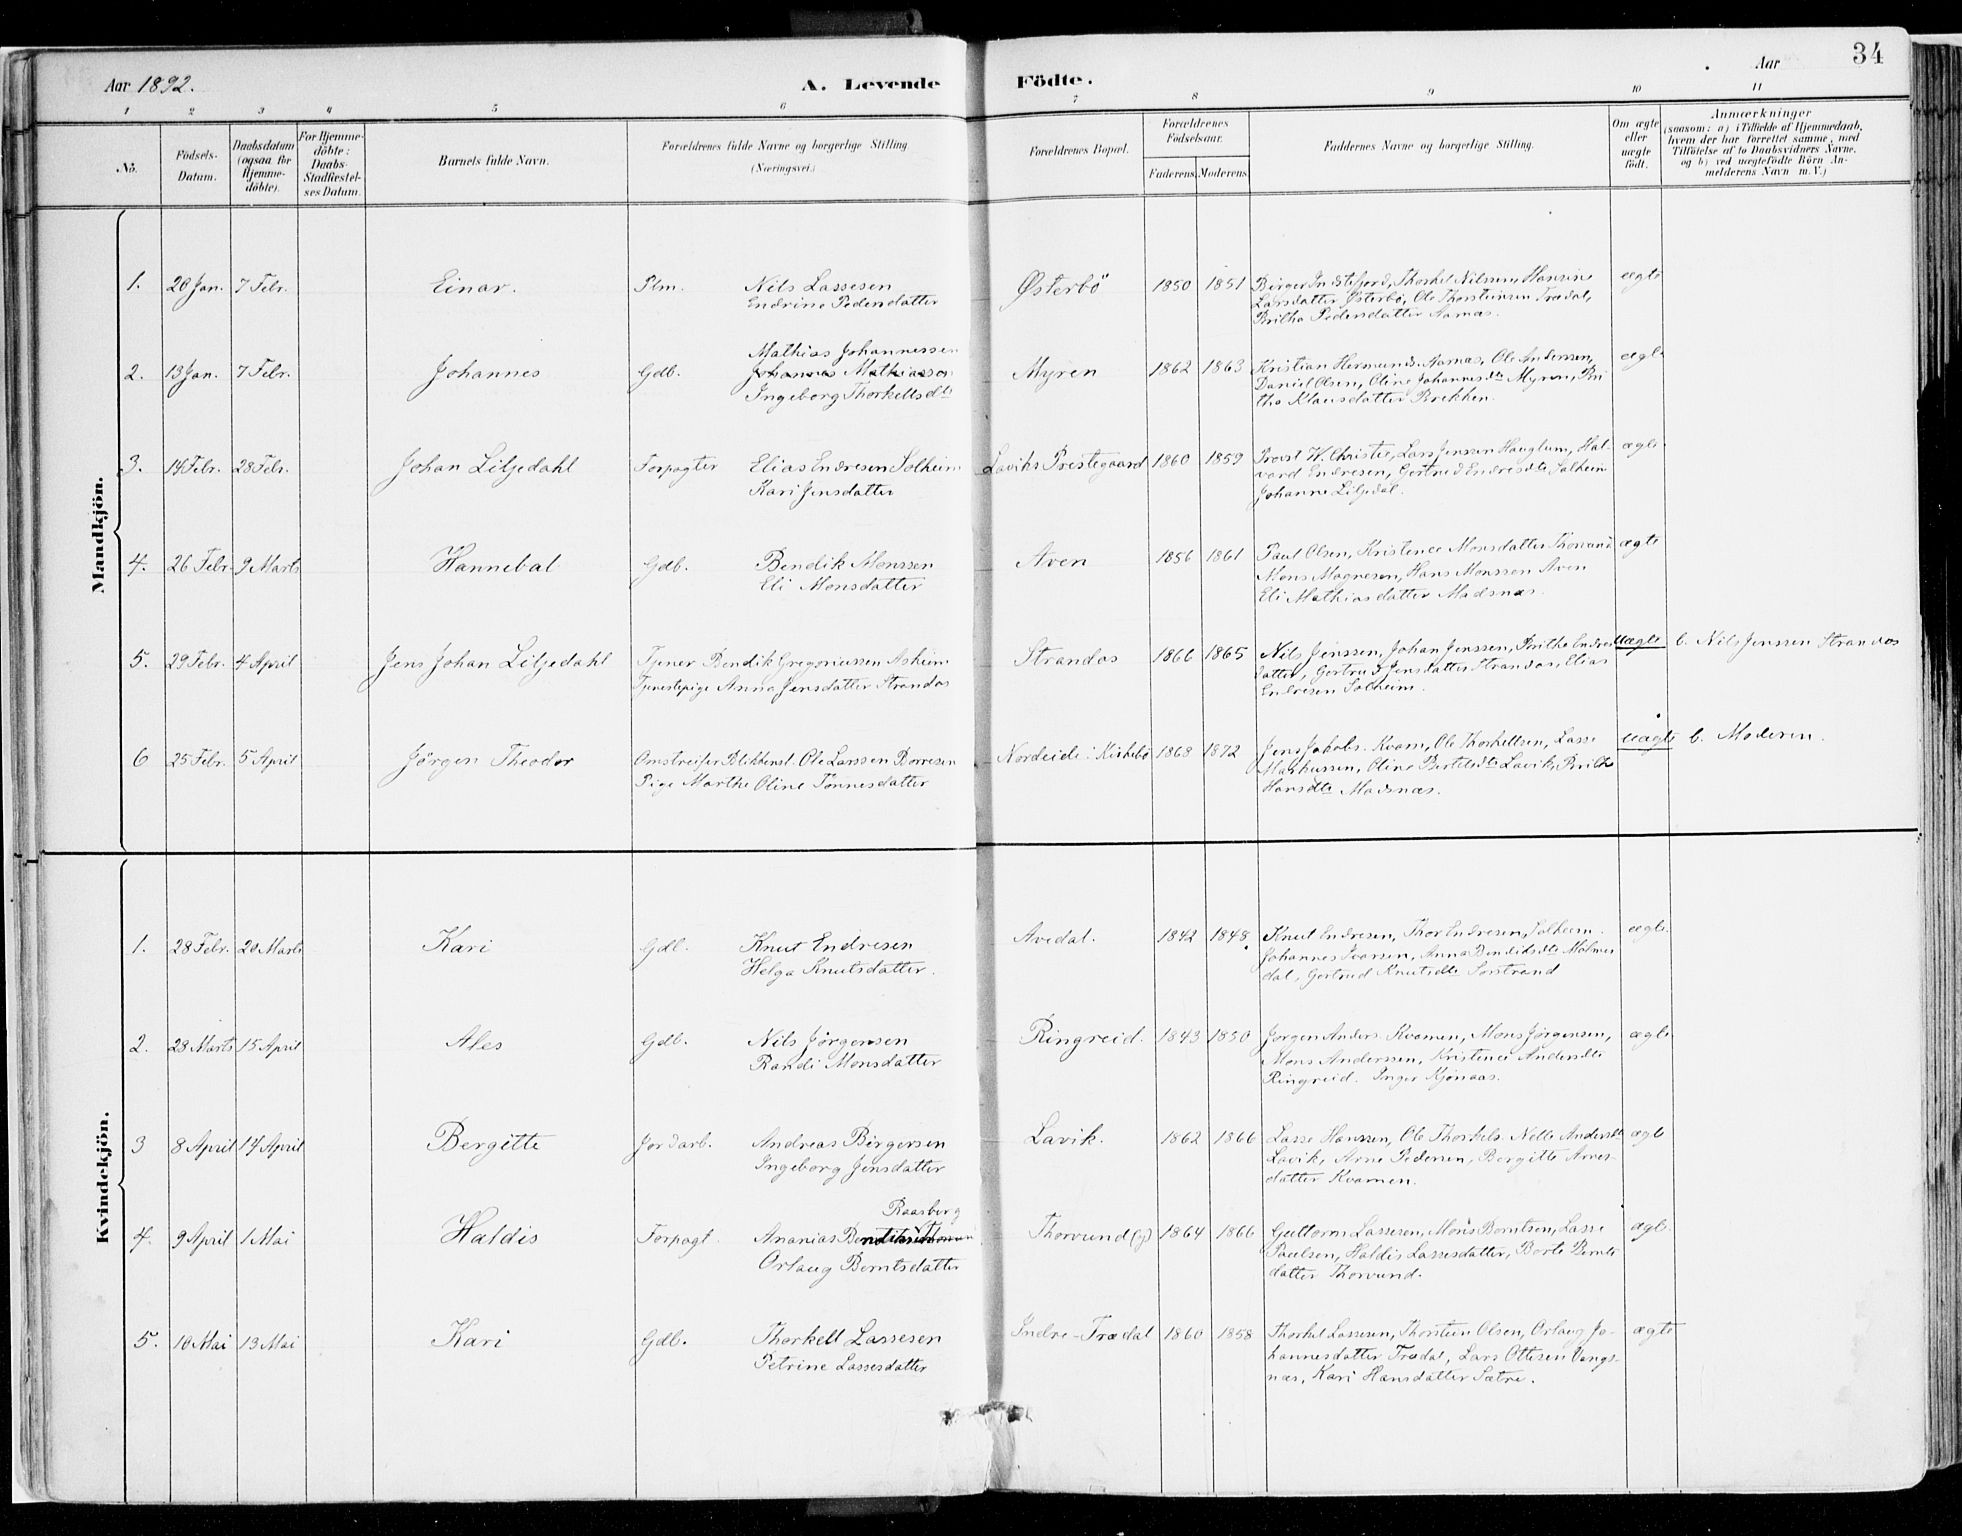 Aar 1892.
A. Levende Födte.
Aar
34
1 2 3 4 5 6 7 8 9 10 11
No.
Födsels-
Datum.
Daabsdatum
(ogsaa for
Hjemme-
döbte).
For Hjemme-
döbte:
Daabs-
Stadfæstel-
ses Datum.
Barnets fulde Navn.
Forældrenes fulde Navne og borgerlige Stilling
(Næringsvei.)
Forældrenes Bopæl.
Forældrenes
Födselsaar.
Faderens. Moderens.
Faddernes Navne og borgerlige Stilling.
Om ægte
eller
uægte
födt.
Anmærkninger
(saasom: a) i Tilfælde af Hjemmedaab,
hvem der har forrettet samme, med
Tilföielse af to Daabsvidners Navne.
og b) ved uægtefödte Börn An-
melderens Navn m. V.)
Mandkjön.
1. 20 Jan. 7 Febr. Einar. Plm. Nils Lassesen
Endrine Pedersdatter
Østerbö 1850 1851 Birger Indstefjord, Thorkel Nilssen, Hansine
Larsdatter Østerbö, Ole Thorsteinsen Trædal,
Britha Pedersdatter Aamæs.
ægte
2. 13 Jan. 7 Febr. Johannes Gdb. Mathias Johannessen
Johannes Mathiassen
Ingeborg Thorkellsdtr
Myren 1862 1863 Kristian Hermunds. Aamæs, Ole Anderssen,
Daniel Olsen, Oline Johannesdtr Myren, Bri
tha Klausdatter Brekken.
ægte
3. 14 Febr. 28 Febr. Johan Liljedahl Forpagter Elias Endresen Solheim
Kari Jensdatter
Laviks Prestegaard 1860 1859 Provst W. Christie, Lars Jenssen Hauglum, Hal-
vard Endresen, Gertrud Endresdtr Solheim
Johanne Liljedal.
ægte
4. 26 Febr. 9 Marts Hannebal Gdb. Bendik Monssen
Eli Monsdatter
Aven 1856 1861 Paul Olsen, Kristence Monsdatter Thorvund
Mons Magnesen, Hans Monssen Aven
Eli Mathiasdatter Madsnæs.
ægte
5. 29 Febr. 4 April Jens Johan Liljedahl Tjener Bendik Gregoriussen Asheim
Tjenestepige Anna Jensdatter Strandos
Strandos 1866 1865 Nils Jenssen, Johan Jenssen, Britha Endres
datter, Gertrud Jensdatter Strandos, Elias
Endresen Solheim.
uægte b. Nils Jenssen Strandos
6 25 Febr. 5 April Jörgen Theodor Omstreifer Blikkensl. Ole Larssen Borresen
Pige Marthe Oline Tönnesdatter
Nordeide i Kirkebö 1868 1872 Jens Jakobs. Kvam, Ole Thorkellsen, Lasse
Markussen, Oline Bertelsdtr Lavik, Brith
Hansdtr Madsnæs.
uægte b. Moderen.
Kvindekjön.
1. 28 Febr. 20 Marts Kari Gdb. Knut Endresen
Helga Knutsdatter.
Avedal. 1842 1848 Knut Endresen, Thor Endresen, Solheim.
Johannes Ivarsen, Anna Bendiksdtr Molmes
dal, Gertrud Knutsdtr Sörstrand
ægte
2. 23 Marts 15 April Ales Gdb. Nils Jörgensen
Randi Monsdatter
Ringreid. 1843 1850 Jörgen Anders. Kvamen, Mons Jörgensen,
Mons Anderssen, Kristence Andersdtr
Ringreid. Inger Kjönaas.
ægte
3 8 April 14 April Bergitte Jordarb. Andreas Birgersen
Ingeborg Jensdatter
Lavik. 1862 1866 Lasse Hanssen, Ole Thorkels. Nelle Andersdtr
Lavik, Arne Pedersen, Bergitte Arnes-
datter Kvamen.
ægte
4. 9 April 1 Mai Haldis Forpagt. Raasberg
Ananias
Orlaug Berntsdatter
Thorvund (y) 1864 1866 Guttorm Lassesen, Mons Berntsen, Lasse
Paulsen, Haldis Lassesdatter, Borte Bernts
datter Thorvund.
ægte
5. 10 Mai 13 Mai Kari Gdb. Thorkell Lassesen
Petrine Lassesdatter
Indre-Trædal 1860 1858 Thorkel Lassesen, Thorstein Olsen, Orlaug Jo-
hannesdatter Trædal, Lars Ottesen Vengs-
næs, Kari Hansdatter Sætre.
ægte